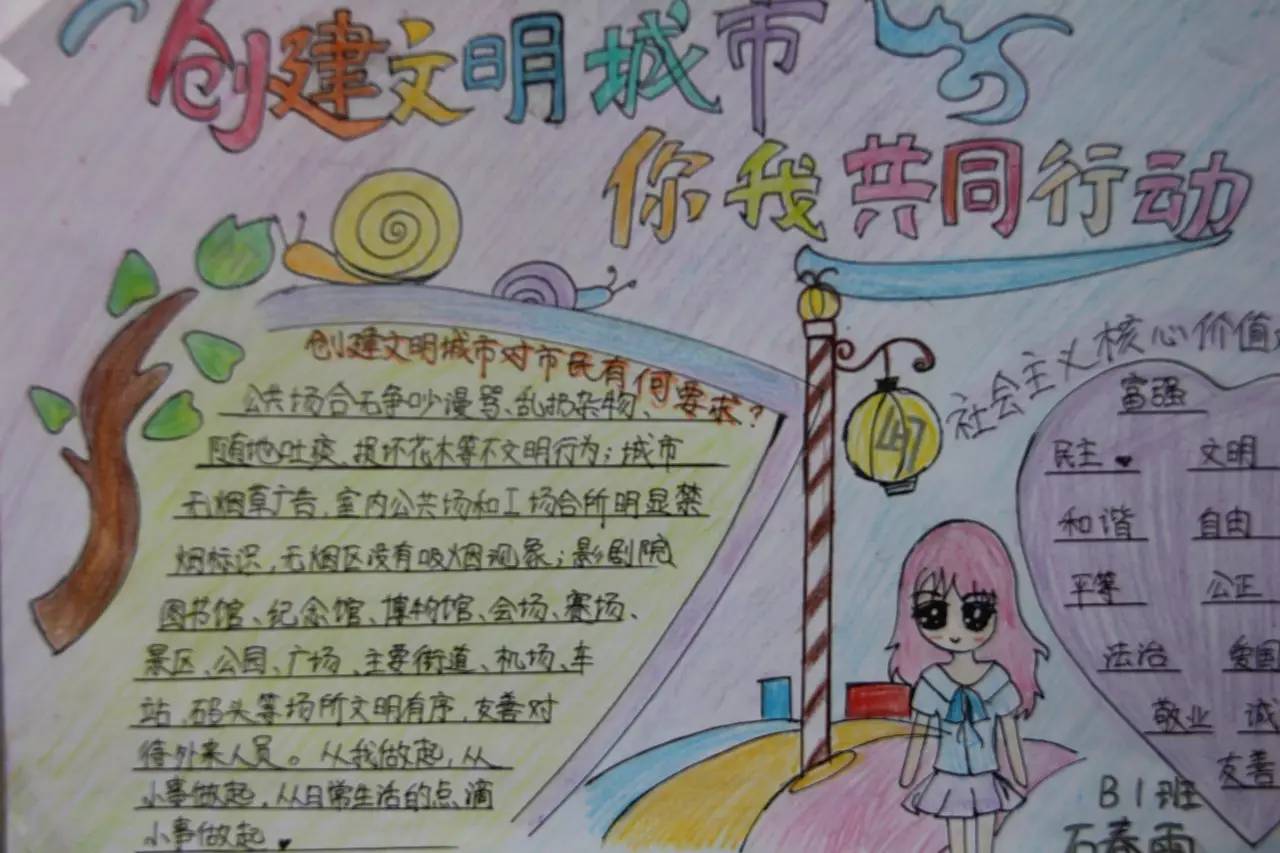 创建文明城市
你我共同行动
创建文明城市对市民有何要求?
公共场合无争吵漫骂、乱扔杂物、
随地吐痰、损坏花木等不文明行为;城市
无烟草广告,室内公共场和工场合所明显禁
烟标识,无烟区没有吸烟现象;影剧院
图书馆、纪念馆、博物馆、会场、赛场、
景区、公园、广场、主要街道、机场、车
站、码头等场所文明有序,友善对
待外来人员。从我做起,从
小事做起,从日常生活的点滴
小事做起
社会主义核心价值
富强
民主 文明
和谐 自由
平等 公正
法治 爱国
敬业 诚
友善
B1班
石春雨